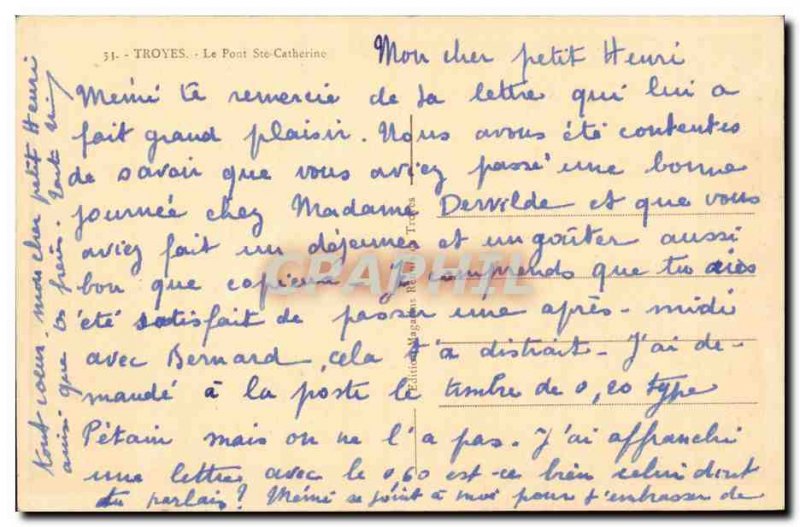 31. - TROYES. - Le Pont Ste-Catherine
Mon cher petit Henri
Mémé te remercie de ta lettre qui lui a
fait grand plaisir. Nous avons été contentes
de savoir que vous aviez passé une bonne
journée chez Madame Derwilde et que vous
aviez fait un déjeuner et un goûter aussi
bon que copieux. Je comprends que tu aies
été satisfait de passer une après-midi
avec Bernard, cela t'a distrait - J'ai de-
mandé à la poste le timbre de 0,20 type
Pétain mais on ne l'a pas. J'ai affranchi
une lettre avec le 0,60 est-ce bien celui dont
tu parlais? Mémé se joint à moi pour t'embrasser de
tout cœur, mon cher petit Henri
ainsi que tes frères.
Edition Magasins Troyes
CPAPHIL